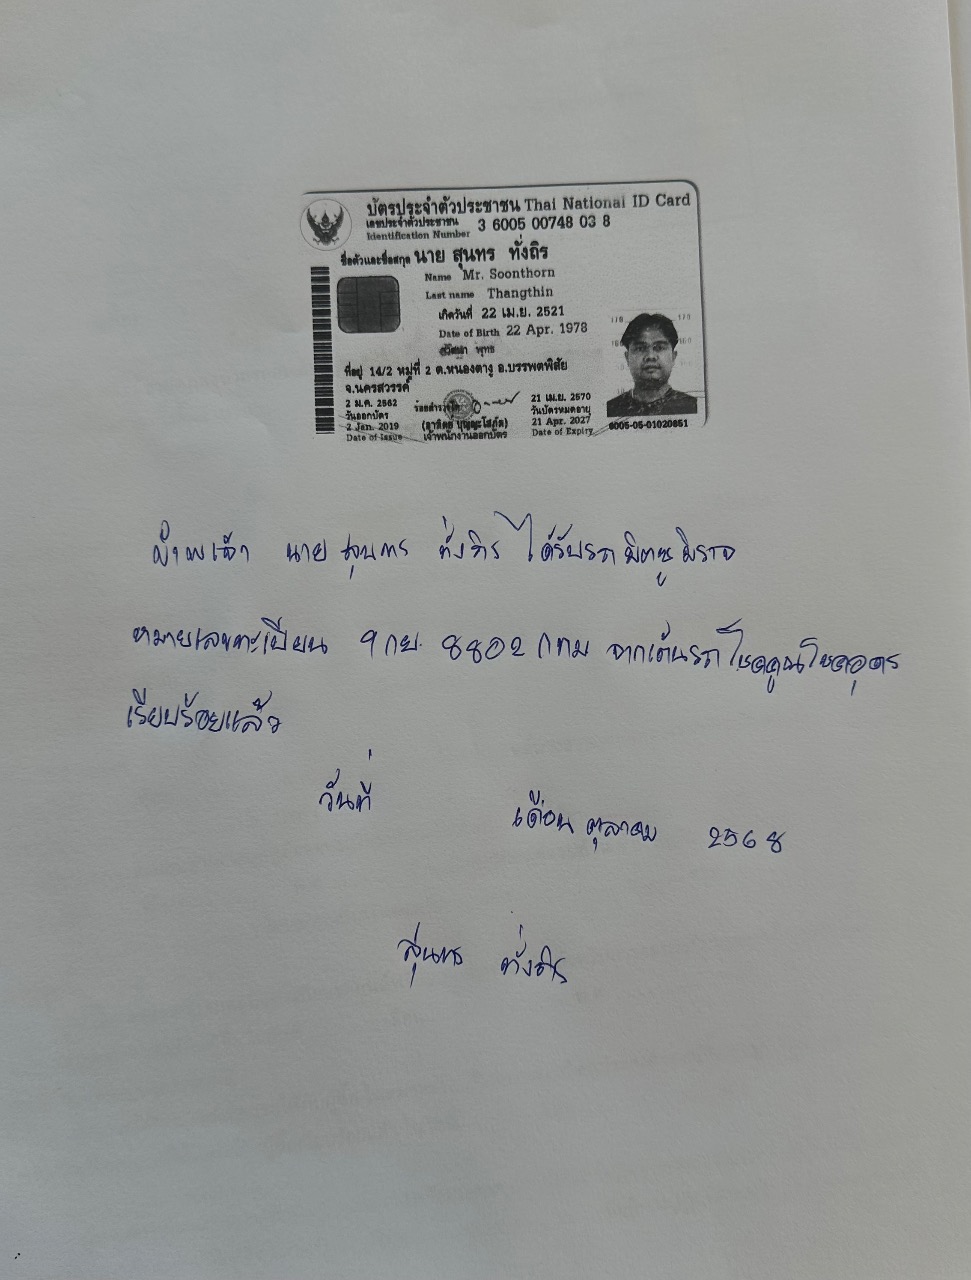 บัตรประจำตัวประชาชน Thai National ID Card
เลขประจำตัวประชาชน
Identification Number 3 6005 00748 03 8
ชื่อตัวและชื่อสกุล นาย สุนทร ทั่งถิร
Name Mr. Soonthorn
Last name Thangthin
เกิดวันที่ 22 เม.ย. 2521
Date of Birth 22 Apr. 1978
พุทธ
ที่อยู่ 14/2 หมู่ที่ 2 ต.หนองตางู อ.บรรพตพิสัย
จ.นครสวรรค์
2 ม.ค. 2562
วันออกบัตร
2 Jan. 2019
Date of Issue
ร้อยตำรวจโท
เจ้าพนักงานออกบัตร
21 เม.ย. 2570
วันบัตรหมดอายุ
21 Apr. 2027
Date of Expiry
6005-05-01020851
ข้าพเจ้า นาย สุนทร ทั่งถิร ได้รับรถ มิตซู มิราจ
หมายเลขทะเบียน 9กย. 8802 กทม จากเต้นรถ โชคคูณโชคอุดร
เรียบร้อยแล้ว
วันที่ เดือน ตุลาคม 2568
สุนทร ทั่งถิร